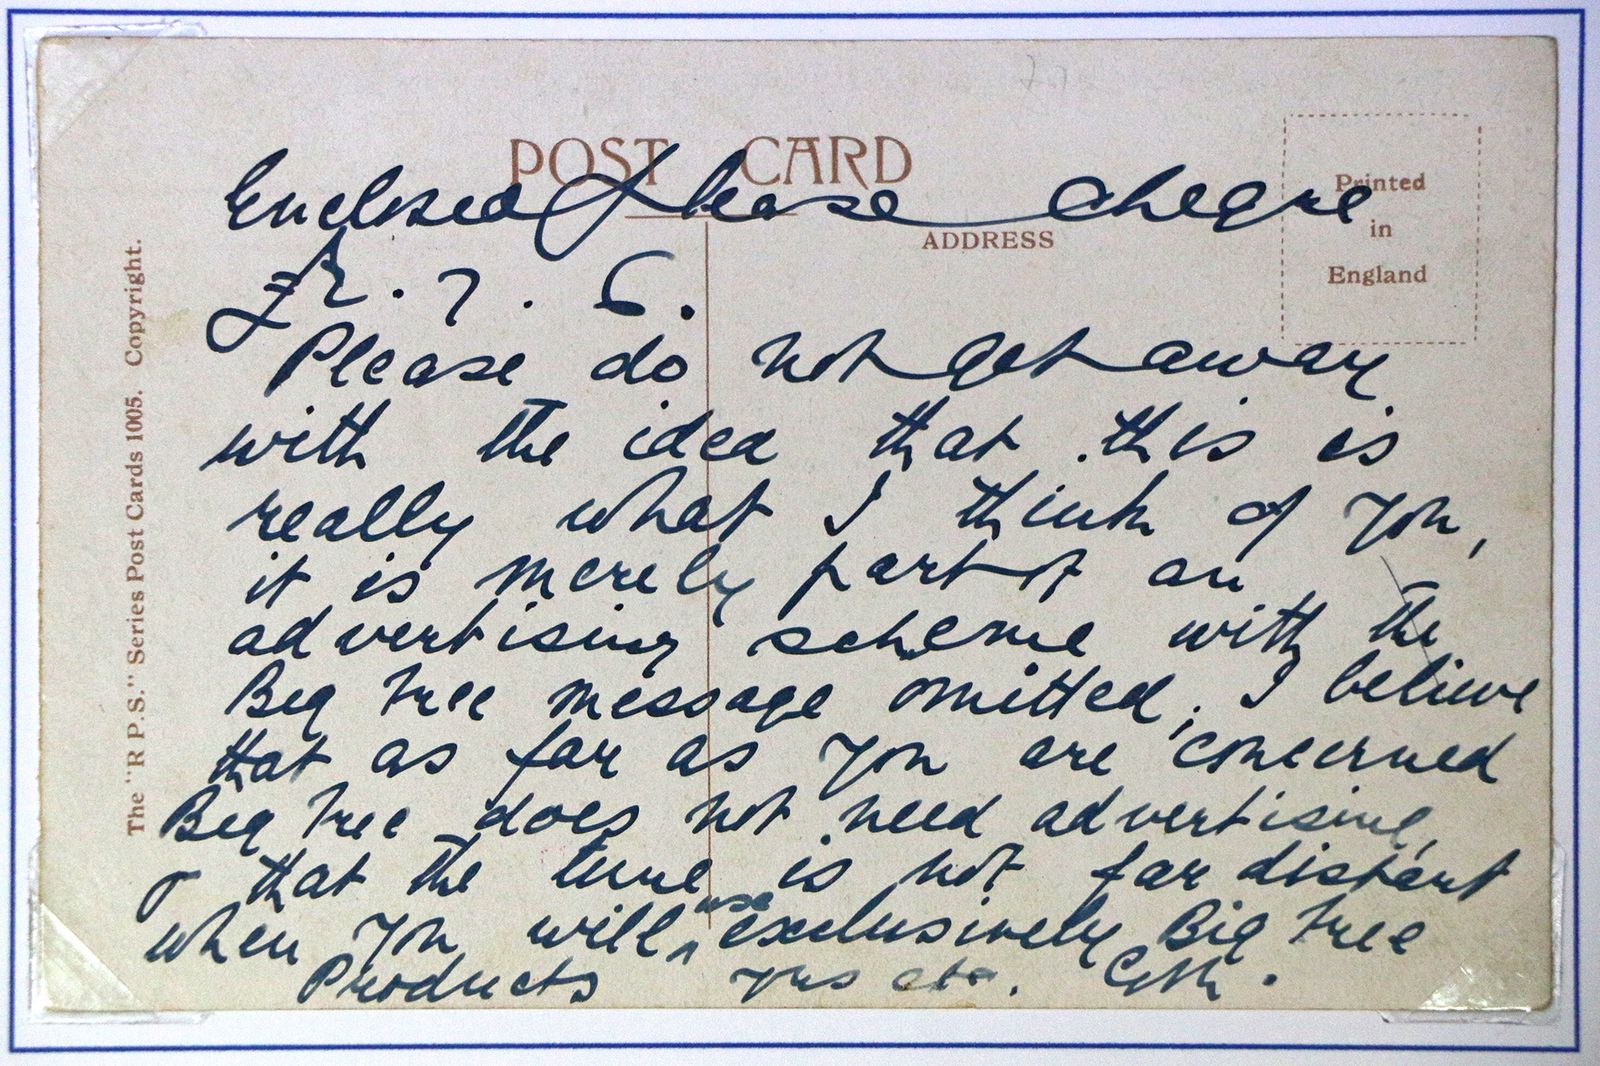 POST CARD
ADDRESS
Printed
in
England
The "R.P.S." Series Post Cards 1005. Copyright.
Enclosed please cheque
£2.7.6.
Please do not get away
with the idea that this is
really what I think of you,
it is merely part of an
advertising scheme with the
Big Tree message omitted, I believe
that as far as you are concerned
Big Tree does not need advertising
& that the time is not far distant
when you will use exclusively Big Tree
Products yrs etc.